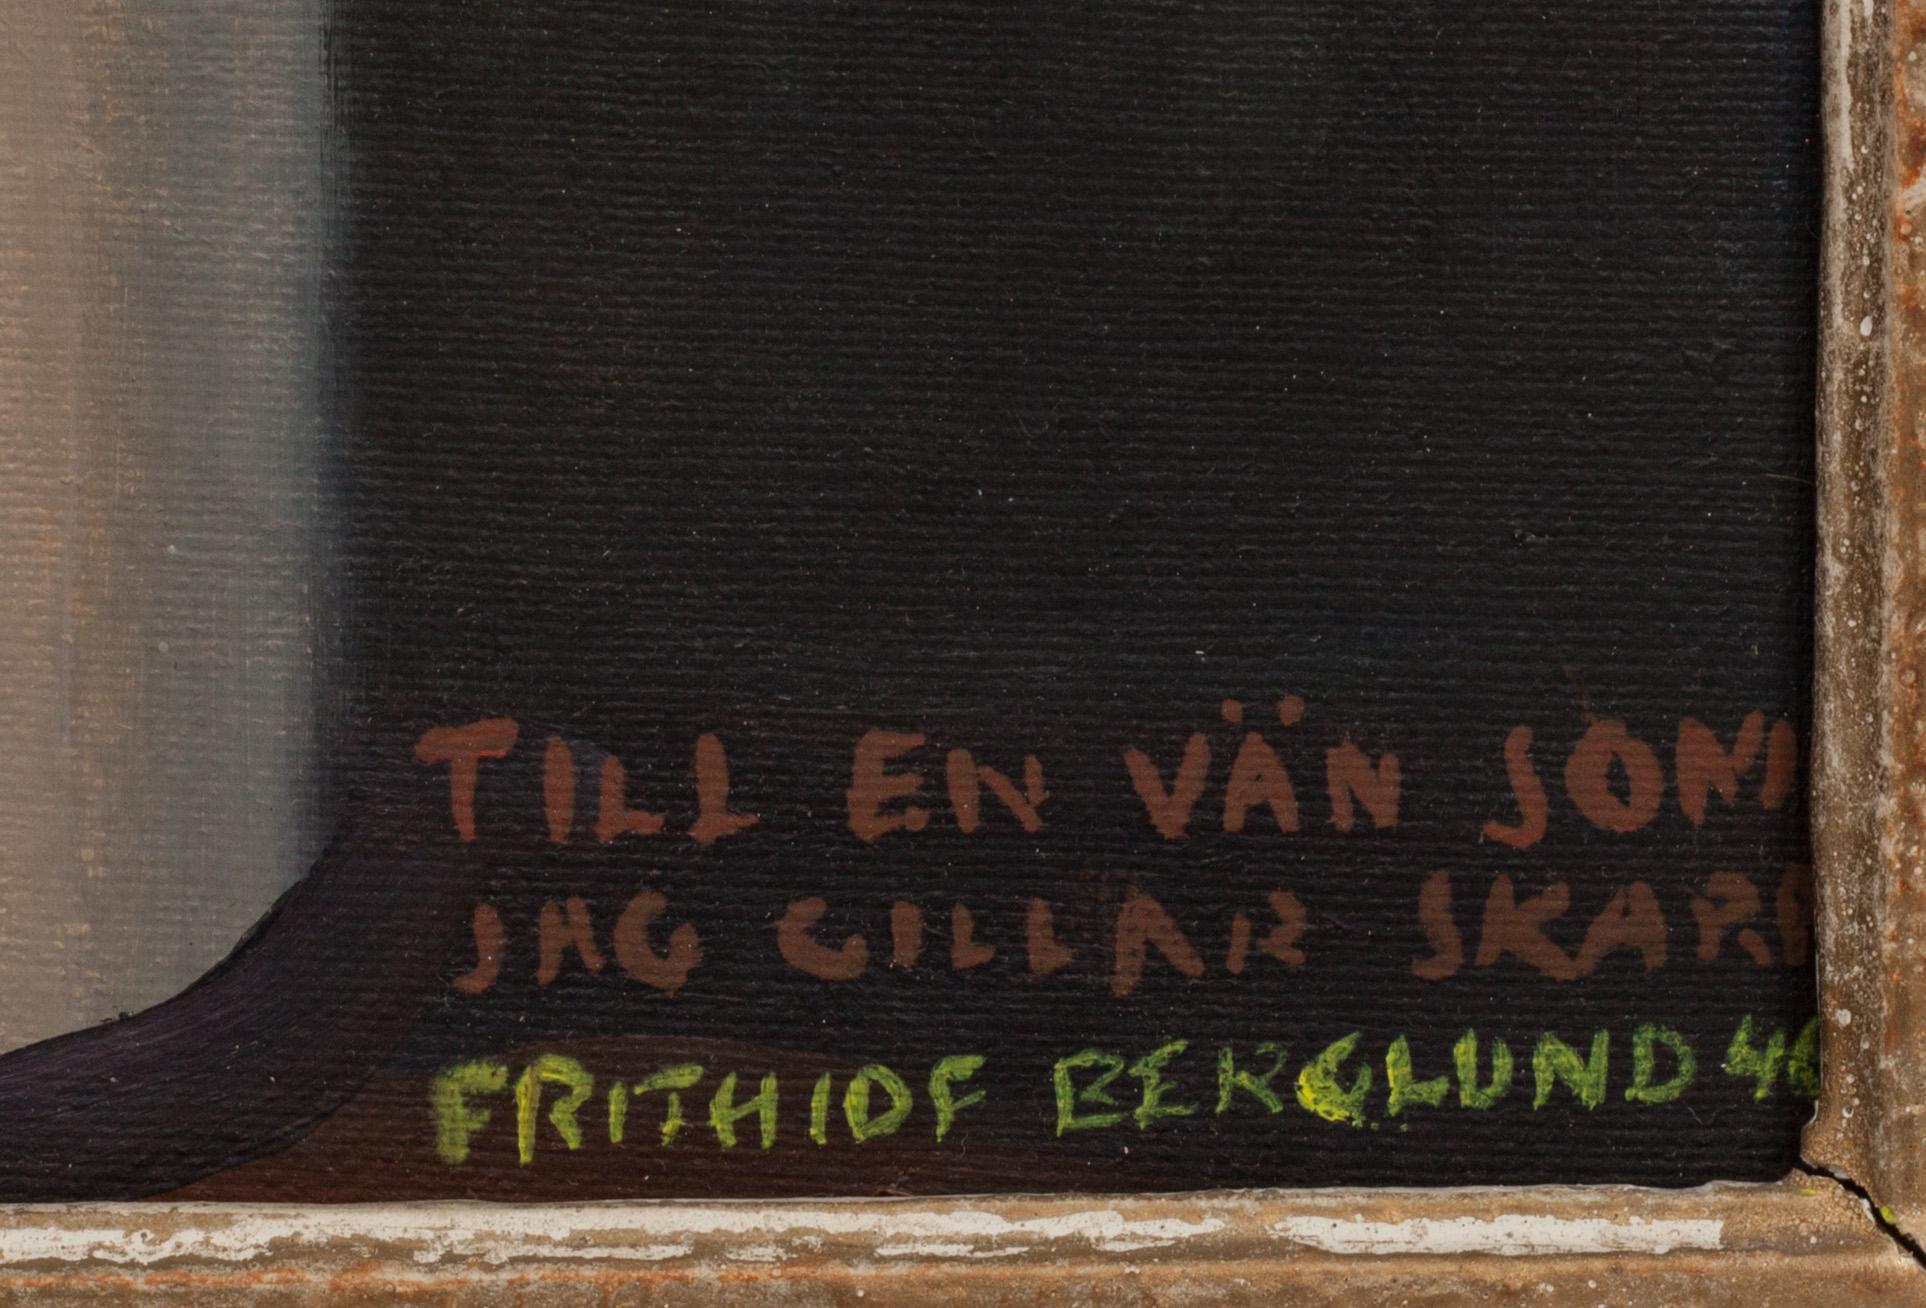 TILL EN VÄN SOM
JAG GILLAR SKARP
FRITHIOF BERGLUND 46